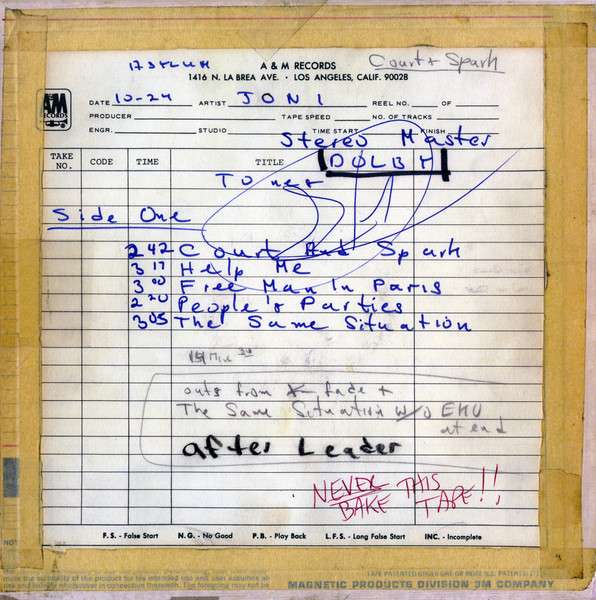 A & M RECORDS
Court + Spark
1416 N. LA BREA AVE. · LOS ANGELES, CALIF. 90028
A&M
RECORDS
DATE 10-24 ARTIST JONI REEL NO. OF
PRODUCER TAPE SPEED NO. OF TRACKS
ENGR. STUDIO TIME START FINISH
Stereo Master
TAKE NO. CODE TIME TITLE DOLBY
Tones
Side One
2 42 Court And Spark
3 17 Help Me
3 00 Free Man In Paris
2 20 People's Parties
3 05 The Same Situation
outs from fade +
The Same Situation w/o EKO
at end
after Leader
NEVER THIS
BAKE TAPE!!
F.S. - False Start N.G. - No Good P.B. - Play Back L.F.S. - Long False Start INC. - Incomplete
MAGNETIC PRODUCTS DIVISION 3M COMPANY